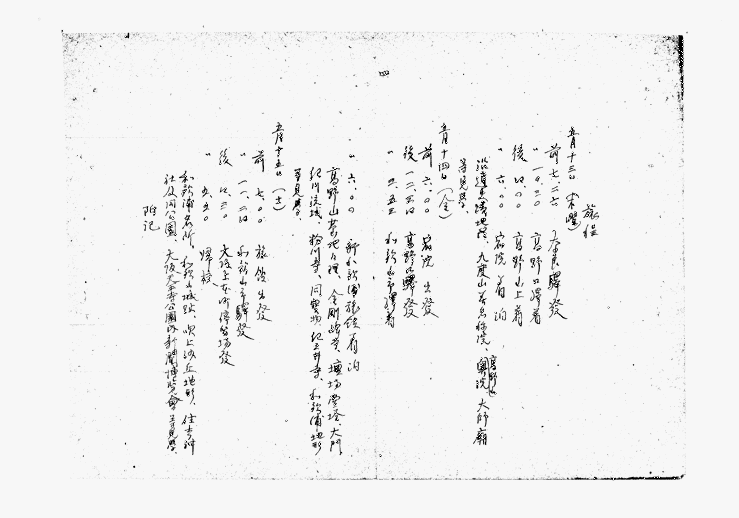 四
旅程
五月十三日（木曜）
前七．二六 奈良驛發
〃一〇．三〇 高野口驛着
後四．〇〇 高野山上着
〃六．〇〇 宿院着泊
沿道見學地理、九度山 院、高野山奥院、大師廟
等見學、
五月十四日（金）
前六．〇〇 宿院出發
後一二．五 高野口驛發
〃三．五三 和歌山市驛着
〃六．〇〇 新和歌浦旅館着泊
高野山 地理、金剛峰寺、壇場 塔、大門
紀川流域、粉川寺、同寶物、紀三井寺、和歌浦地形
等見學、
五月十五日（土）
前七．〇〇 旅館出發
〃一一． 和歌山市驛發
後四．三〇 大阪上本町停留場發
〃五．五〇 歸校
和歌浦名所、和歌山城趾、吹上沙丘地形、住吉神
社及同公園、大阪天王寺公園内新聞博覽會等見學、
附記